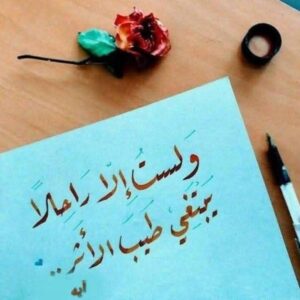 وَلستُ إلّا رَاحِلاً
يَبتَغي طِيبَ الأثرِ..